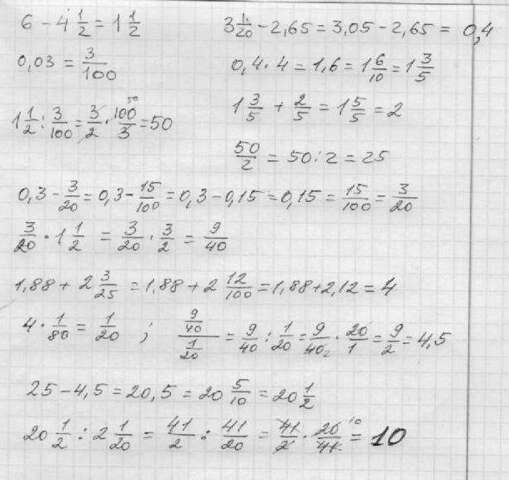 6 - 4 1/2 = 1 1/2
3 1/20 - 2,65 = 3,05 - 2,65 = 0,4
0,03 = 3/100
0,4 · 4 = 1,6 = 1 6/10 = 1 3/5
1 1/2 : 3/100 = 3/2 · 100/3 = 50
50
1 3/5 + 2/5 = 1 5/5 = 2
50/2 = 50 : 2 = 25
0,3 - 3/20 = 0,3 - 15/100 = 0,3 - 0,15 = 0,15 = 15/100 = 3/20
3/20 · 1 1/2 = 3/20 · 3/2 = 9/40
1,88 + 2 3/25 = 1,88 + 2 12/100 = 1,88 + 2,12 = 4
4 · 1/80 = 1/20 ; (9/40)/(1/20) = 9/40 : 1/20 = 9/40 2 · 20/1 = 9/2 = 4,5
25 - 4,5 = 20,5 = 20 5/10 = 20 1/2
20 1/2 : 2 1/20 = 41/2 : 41/20 = 41/2 · 20/41 10 = 10